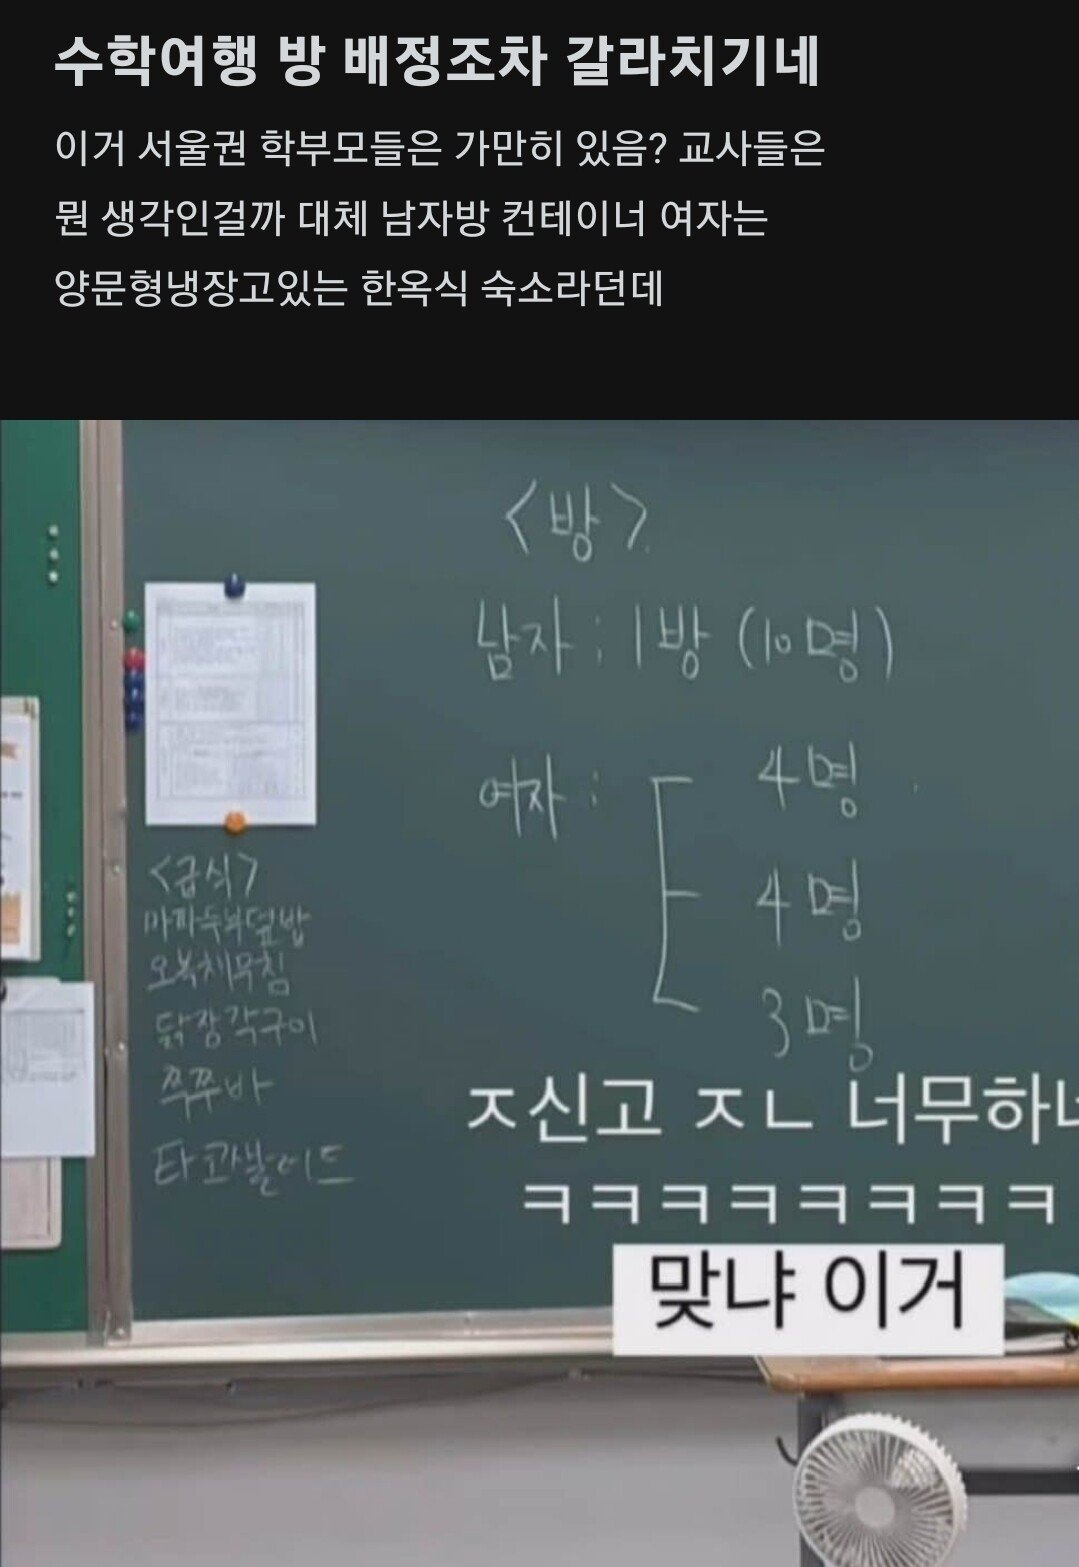 수학여행 방 배정조차 갈라치기네
이거 서울권 학부모들은 가만히 있음? 교사들은
뭔 생각인걸까 대체 남자방 컨테이너 여자는
양문형냉장고있는 한옥식 숙소라던데
<방>
남자 : 1방 (10명)
여자 :
4명
4명
3명
<급식>
마파두부덮밥
오복채무침
닭장각구이
쭈쭈바
타코샐러드
ㅈ신고 ㅈㄴ 너무하네
ㅋㅋㅋㅋㅋㅋㅋㅋ
맞냐 이거